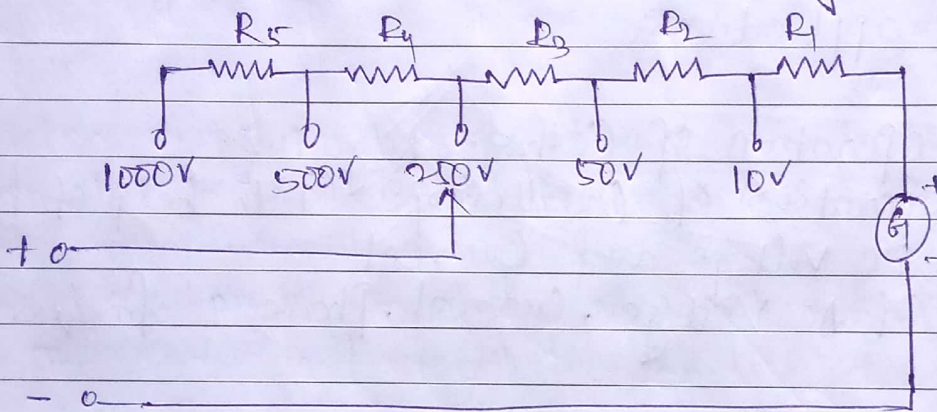 R5 R4 R3 R2 R1
1000V 500V 250V 50V 10V
+
G
-
+
-